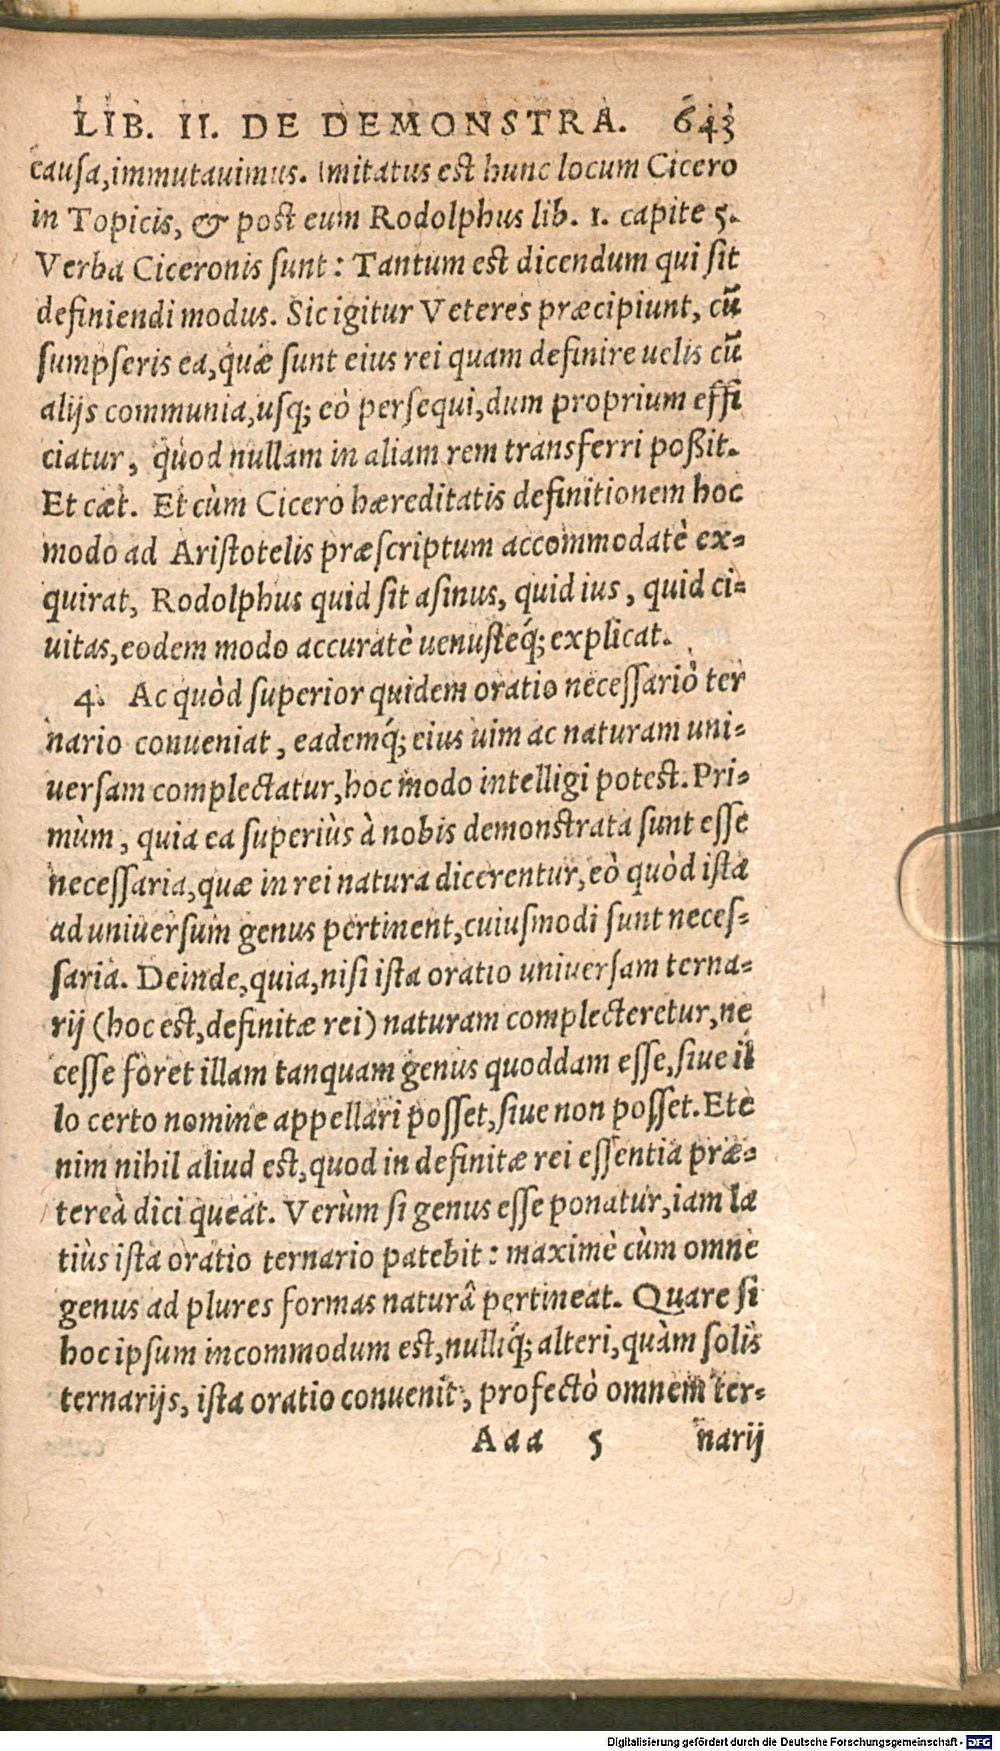 LIB. II. DE DEMONSTRA. 643
causa,immutauimus. Imitatus est hunc locum Cicero
in Topicis, & post eum Rodolphus lib. 1. capite 5.
Verba Ciceronis sunt: Tantum est dicendum qui sit
definiendi modus. Sic igitur Veteres præcipiunt, cū
sumpseris ea,quæ sunt eius rei quam definire uelis cū
alijs communia,usq; eò persequi,dum proprium effi
ciatur, quod nullam in aliam rem transferri poßit.
Et cæt. Et cùm Cicero hæreditatis definitionem hoc
modo ad Aristotelis præscriptum accommodatè ex-
quirat, Rodolphus quid sit asinus, quid ius, quid ci-
uitas,eodem modo accuratè uenusteq́; explicat.
4. Ac quòd superior quidem oratio necessariò ter
nario conueniat, eademq́; eius uim ac naturam uni-
uersam complectatur,hoc modo intelligi potest. Pri-
mùm, quia ea superiùs à nobis demonstrata sunt esse
necessaria,quæ in rei natura dicerentur,eò quòd ista
ad uniuersum genus pertinent,cuiusmodi sunt neces-
saria. Deinde,quia,nisi ista oratio uniuersam terna-
rij (hoc est,definitæ rei) naturam complecteretur,ne
cesse foret illam tanquam genus quoddam esse,siue il
lo certo nomine appellari posset,siue non posset. Ete
nim nihil aliud est,quod in definitæ rei essentia præ-
tereà dici queat. Verùm si genus esse ponatur,iam la
tiùs ista oratio ternario patebit: maximè cùm omne
genus ad plures formas naturâ pertineat. Quare si
hoc ipsum incommodum est,nulliq́; alteri,quàm solis
ternarijs, ista oratio conuenit, profectò omnem ter-
Aaa 5 narij
Digitalisierung gefördert durch die Deutsche Forschungsgemeinschaft - DFG